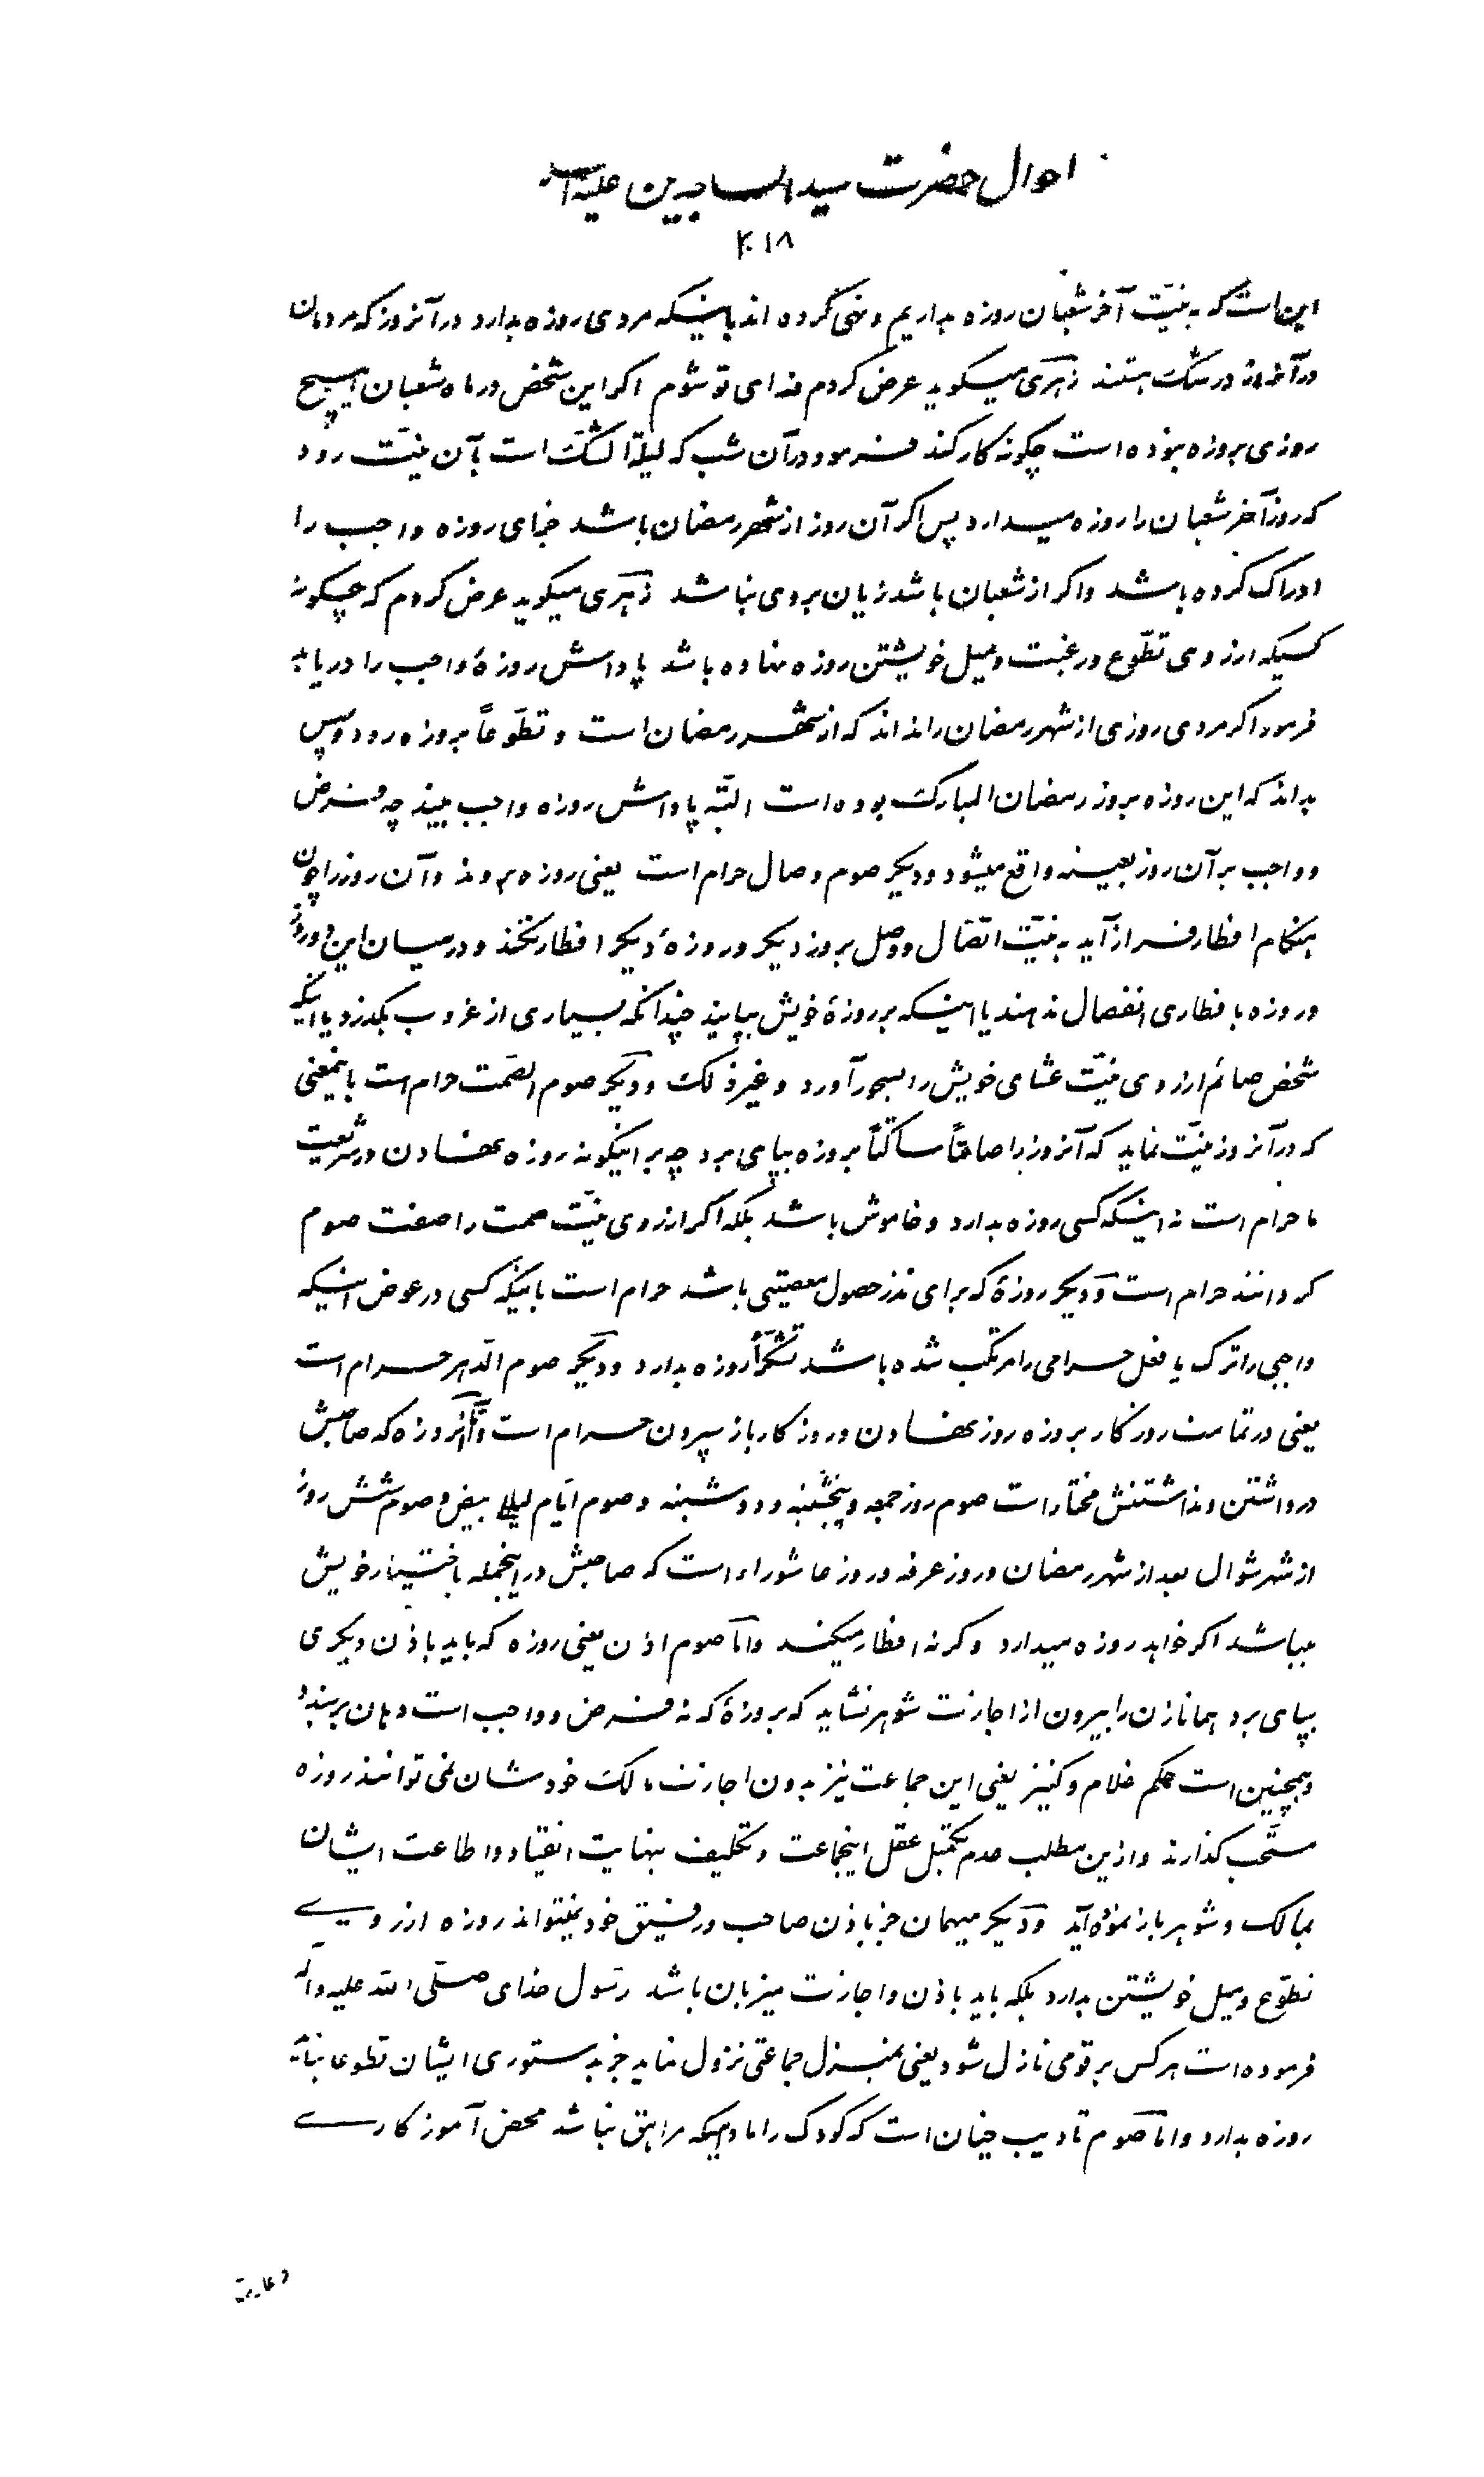 احوال حضرت سید الساجدین علیه السلام
۴۱۸
این است که به نیّت آخر شعبان روزه بداریم و نهی کرده اند باینکه مردی روزه بدارد در آنروز که مردمان
در آنروز در شک هستند زهری میگوید عرض کردم فدای تو شوم اگر این شخص در ماه شعبان هیچ
روزی بروزه نبوده است چگونه کار کند فرمود در آن شب که لیلة الشک است بآن نیّت رود
که روز آخر شعبان را روزه میدارد پس اگر آن روز از شهر رمضان باشد خبای روزه واجب را
ادراک کرده باشد و اگر از شعبان باشد زیان بروی نباشد زهری میگوید عرض کردم که چگونه
کسیکه از روی تطوّع و رغبت و میل خویشتن روزه نهاده باشد پاداش روزهٔ واجب را دریابد
فرمود اگر مردی روزی از شهر رمضان را نداند که از شهر رمضان است و تطوّعاً بروزه رود و سپس
بداند که این روزه بروز رمضان المبارک بوده است البتّه پاداش روزه واجب بیند چه فرض
و واجب بر آن روز بعینه واقع میشود و دیگر صوم وصال حرام است یعنی روزه بروند و آن روز را چون
هنگام افطار فراز آید به نیّت اتّصال و وصل بروز دیگر و روزهٔ دیگر افطار نکنند و در میان این دو روز
و روزه بافطاری انفصال ندهند یا اینکه بر روزهٔ خویش بپایند چندانکه بسیاری از غروب بگذرد یا اینکه
شخص صائم از روی نیّت عشای خویش را بسحور آورد و غیر ذلک و دیگر صوم الصّمت حرام است باینمعنی
که در آنروز نیّت نماید که آنروز را صامتاً ساکتاً بروزه بپای برد چه بر اینگونه روزه نهادن در شریعت
ما حرام است نه اینکه کسی روزه بدارد و خاموش باشد بلکه اگر از روی نیّت صمت را صفت صوم
گردانند حرام است و دیگر روزهٔ که برای نذر حصول معصیتی باشد حرام است باینکه کسی در عوض اینکه
واجبی را ترک یا فعل حرامی را مرتکب شده باشد تشکّراً روزه بدارد و دیگر صوم الدّهر حرام است
یعنی در تمامت روزگار بروزه روز نهادن و روزگار باز سپردن حرام است و امّا آنروزه که صاحبش
در داشتن و نداشتنش مختار است صوم روز جمعه و پنجشنبه و دوشنبه و صوم ایّام لیالی بیض و صوم شش روز
از شهر شوال بعد از شهر رمضان و روز عرفه و روز عاشوراء است که صاحبش در اینجمله باختیار خویش
میباشد اگر خواهد روزه میدارد و گرنه افطار میکند و امّا صوم اذن یعنی روزه که باید باذن دیگری
بپای برد همانا زن را بیرون از اجازت شوهر نشاید که بروزهٔ که نه فرض و واجب است دهان بربندد
و همچنین است حکم غلام و کنیز یعنی این جماعت نیز بدون اجازت مالک خودشان نمی توانند روزه
مستحب گذارند و ازین مطلب عدم تکمّل عقل اینجماعت و تکلیف بنهایت انقیاد و اطاعت ایشان
بمالک و شوهر باز نموده آید و دیگر میهمان جز باذن صاحب و رفیق خود نمیتواند روزه از روی
تطوّع و میل خویشتن بدارد بلکه باید باذن و اجازت میزبان باشد رسول خدای صلّی الله علیه وآله
فرموده است هر کس بر قومی نازل شود یعنی بمنزل جماعتی نزول نماید جز بدستوری ایشان تطوعا نباید
روزه بدارد و امّا صوم تادیب چنان است که کودک را مادامیکه مراهق نباشد محض آموزگاری